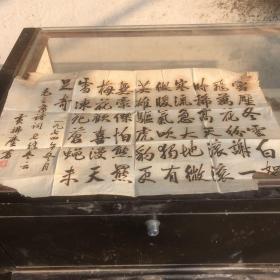 雪壓冬雲白絮
飛萬花紛謝一
時稀高天滾滾
寒流急大地微
微暖氣吹獨有
英雄驅虎豹更
無豪傑怕熊羆
梅花歡喜漫天
雪凍死蒼蠅未
足奇
毛主席詩詞七律冬云